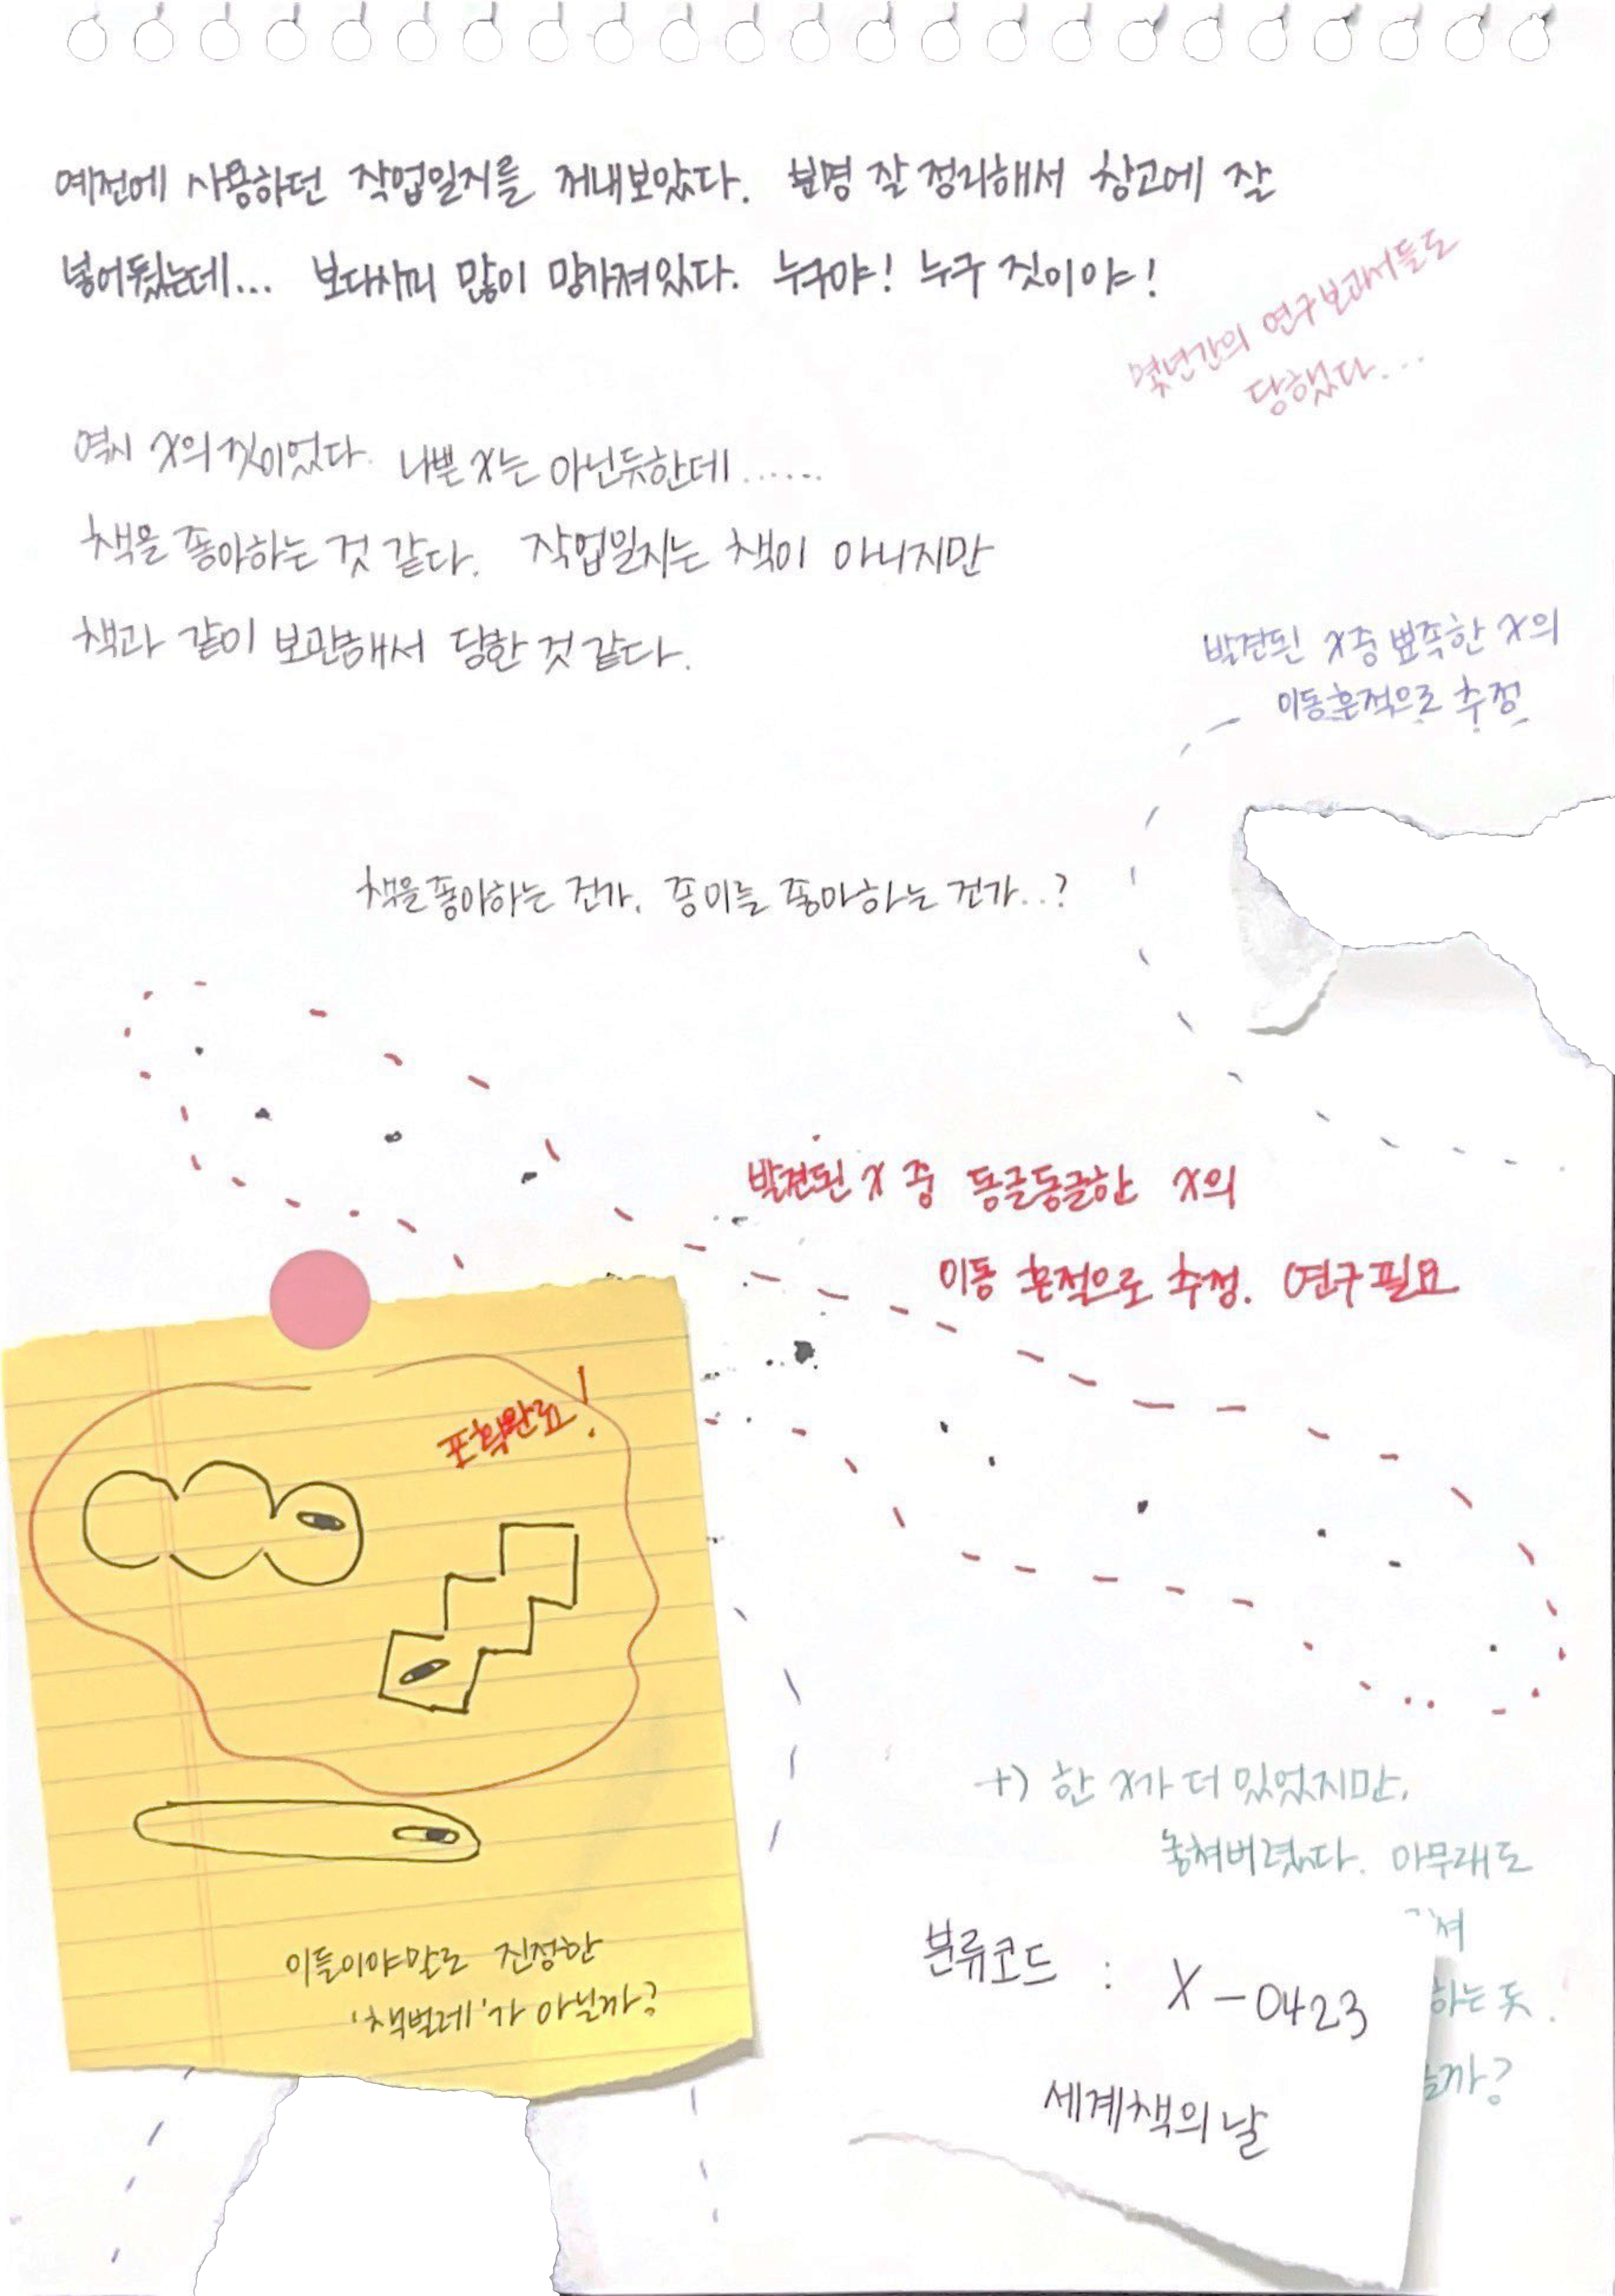 예전에 사용하던 작업일지를 꺼내보았다. 분명 잘 정리해서 창고에 잘
넣어뒀는데... 보다시피 많이 망가져있다. 누구야! 누구 짓이야!
몇년간의 연구보고서들도
당했다...
역시 X의 짓이었다. 나쁜 X는 아닌듯한데......
책을 좋아하는 것 같다. 작업일지는 책이 아니지만
책과 같이 보관해서 당한 것 같다.
발견된 X중 뾰족한 X의
이동흔적으로 추정
책을 좋아하는 건가, 종이를 좋아하는 건가..?
발견된 X 중 동글동글한 X의
이동 흔적으로 추정. 연구필요
포획완료!
이들이야말로 진정한
'책벌레'가 아닐까?
+) 한 X가 더 있었지만,
놓쳐버렸다. 아무래도
하는 듯.
분류코드 : X-0423
세계책의날